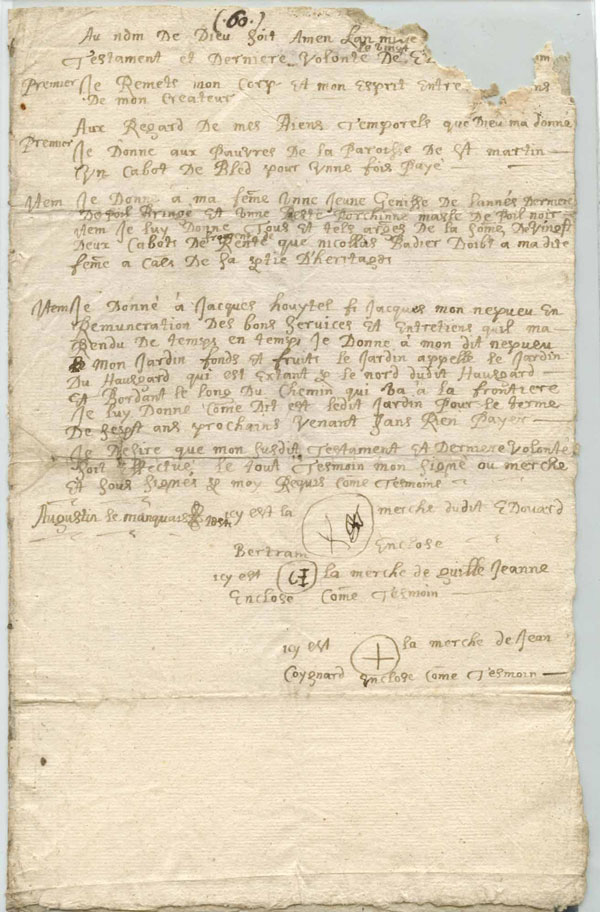 (60.)
Au nom De Dieu Soit Amen Lan
Testament et Derniere Volonte De E
Premier Je Remets mon Corp Et mon Esprit Entre
De mon Createur
Aux Regard De mes Biens Temporels que Dieu ma donne
Premier Je Donne aux Pauvres De la Paroisse De St martin
Un Cabot De Bled pour Unne fois Paye
Item Je Donne a ma feme Unne Jeune Genisse De lannee Derniere
De Poil Bringe Et Unne masle De Poil noir
item Je luy Donne Tous et tels De la Some De Vingt
Deux Cabots De froment de Rente que nicollas Badier Doibt a madite
feme a Cause De Sa ptie D'heritage
Item Je Donne à Jacques houytel fi Jacques mon nepveu En
Remuneration Des bons Services Et Entretiens quil ma
Rendu De temps en temps Je Donne à mon dit nepveu
Mon Jardin fonds et fruits le Jardin appelle le Jardin
Du Hausgard qui est Extant p le nord dudit Hausgard
Et Bordant le long Du Chemin qui Va à la frontiere
Je luy Donne Come Dit est ledit Jardin Pour le terme
De Sept ans prochains Venant Sans Rien Payer
Je Desire que mon Susdit Testament Et Derniere Volonte
Soit Effectué le tout Tesmoin mon Signe ou merche
Et Sous Signes p moy Requis Come Tesmoins
Augustin le manquais icy est la merche dudit Edouard
Bertram Enclose
icy est la merche de guille Jeanne
Enclose Come Tesmoin
icy est la merche de Jean
Coignard Enclose Come Tesmoin